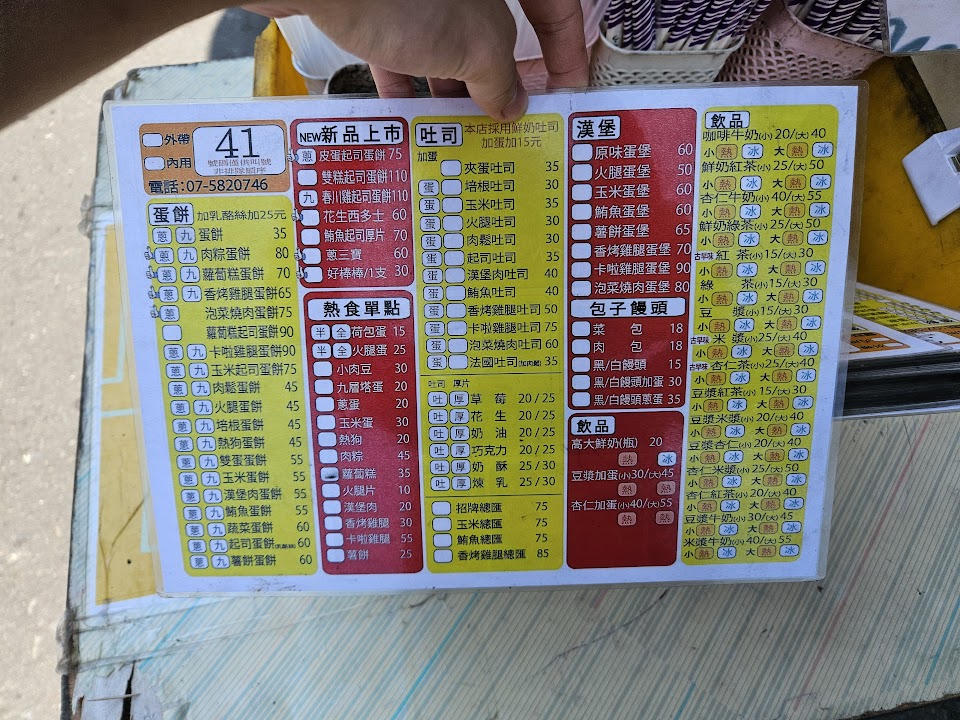 外帶
內用
41
號碼僅供叫號
非排隊順序
電話:07-5820746
蛋餅 加乳酪絲加25元
蔥 九 蛋餅 35
蔥 九 肉粽蛋餅 80
蔥 九 蘿蔔糕蛋餅 70
蔥 九 香烤雞腿蛋餅 65
蔥 泡菜燒肉蛋餅 75
蘿蔔糕起司蛋餅 90
蔥 九 卡啦雞腿蛋餅 90
蔥 九 玉米起司蛋餅 75
蔥 九 肉鬆蛋餅 45
蔥 九 火腿蛋餅 45
蔥 九 培根蛋餅 45
蔥 九 熱狗蛋餅 45
蔥 九 雙蛋蛋餅 55
蔥 九 玉米蛋餅 55
蔥 九 漢堡肉蛋餅 55
蔥 九 鮪魚蛋餅 55
蔥 九 蔬菜蛋餅 60
蔥 九 起司蛋餅 60
蔥 九 薯餅蛋餅 60
NEW新品上市
蔥 皮蛋起司蛋餅 75
雙糕起司蛋餅 110
九 春川雞起司蛋餅 110
花生西多士 60
鮪魚起司厚片 70
蔥三寶 60
好棒棒/1支 30
熱食單點
半 全 荷包蛋 15
半 全 火腿蛋 25
小肉豆 30
九層塔蛋 20
蔥蛋 20
玉米蛋 30
熱狗 20
肉粽 45
蘿蔔糕 35
火腿片 10
漢堡肉 20
香烤雞腿 30
卡啦雞腿 55
薯餅 25
吐司 本店採用鮮奶吐司
加蛋加15元
加蛋
夾蛋吐司 35
蛋 培根吐司 30
蛋 玉米吐司 35
蛋 火腿吐司 30
蛋 肉鬆吐司 30
蛋 起司吐司 35
蛋 漢堡肉吐司 40
蛋 鮪魚吐司 40
蛋 香烤雞腿吐司 50
蛋 卡啦雞腿吐司 75
蛋 泡菜燒肉吐司 60
蛋 法國吐司 35
吐司 厚片
吐 厚 草莓 20/25
吐 厚 花生 20/25
吐 厚 奶油 20/25
吐 厚 巧克力 20/25
吐 厚 奶酥 25/30
吐 厚 煉乳 25/30
招牌總匯 75
玉米總匯 75
鮪魚總匯 75
香烤雞腿總匯 85
漢堡
原味蛋堡 60
火腿蛋堡 50
玉米蛋堡 60
鮪魚蛋堡 60
薯餅蛋堡 65
香烤雞腿蛋堡 70
卡啦雞腿蛋堡 90
泡菜燒肉蛋堡 80
包子饅頭
菜包 18
肉包 18
黑/白饅頭 15
黑/白饅頭加蛋 30
黑/白饅頭蔥蛋 35
飲品
高大鮮奶(瓶) 20
熱 冰
豆漿加蛋(小)30/(大)45
熱 熱
杏仁加蛋(小)40/(大)55
熱 熱
飲品
咖啡牛奶(小)20/(大)40
小 熱 冰 大 熱 冰
鮮奶紅茶(小)25/(大)50
小 熱 冰 大 熱 冰
杏仁牛奶(小)40/(大)55
小 熱 冰 大 熱 冰
鮮奶綠茶(小)25/(大)50
小 熱 冰 大 熱 冰
古早味 紅茶(小)15/(大)30
小 熱 冰 大 熱 冰
綠茶(小)15/(大)30
小 熱 冰 大 熱 冰
豆漿(小)15/(大)30
小 熱 冰 大 熱 冰
古早味 米漿(小)25/(大)50
小 熱 冰 大 熱 冰
古早味 杏仁茶(小)25/(大)50
小 熱 冰 大 熱 冰
豆漿紅茶(小)15/(大)30
小 熱 冰 大 熱 冰
豆漿米漿(小)20/(大)40
小 熱 冰 大 熱 冰
豆漿杏仁(小)20/(大)40
小 熱 冰 大 熱 冰
杏仁米漿(小)25/(大)50
小 熱 冰 大 熱 冰
杏仁紅茶(小)20/(大)40
小 熱 冰 大 熱 冰
豆漿牛奶(小)30/(大)45
小 熱 冰 大 熱 冰
米漿牛奶(小)40/(大)55
小 熱 冰 大 熱 冰